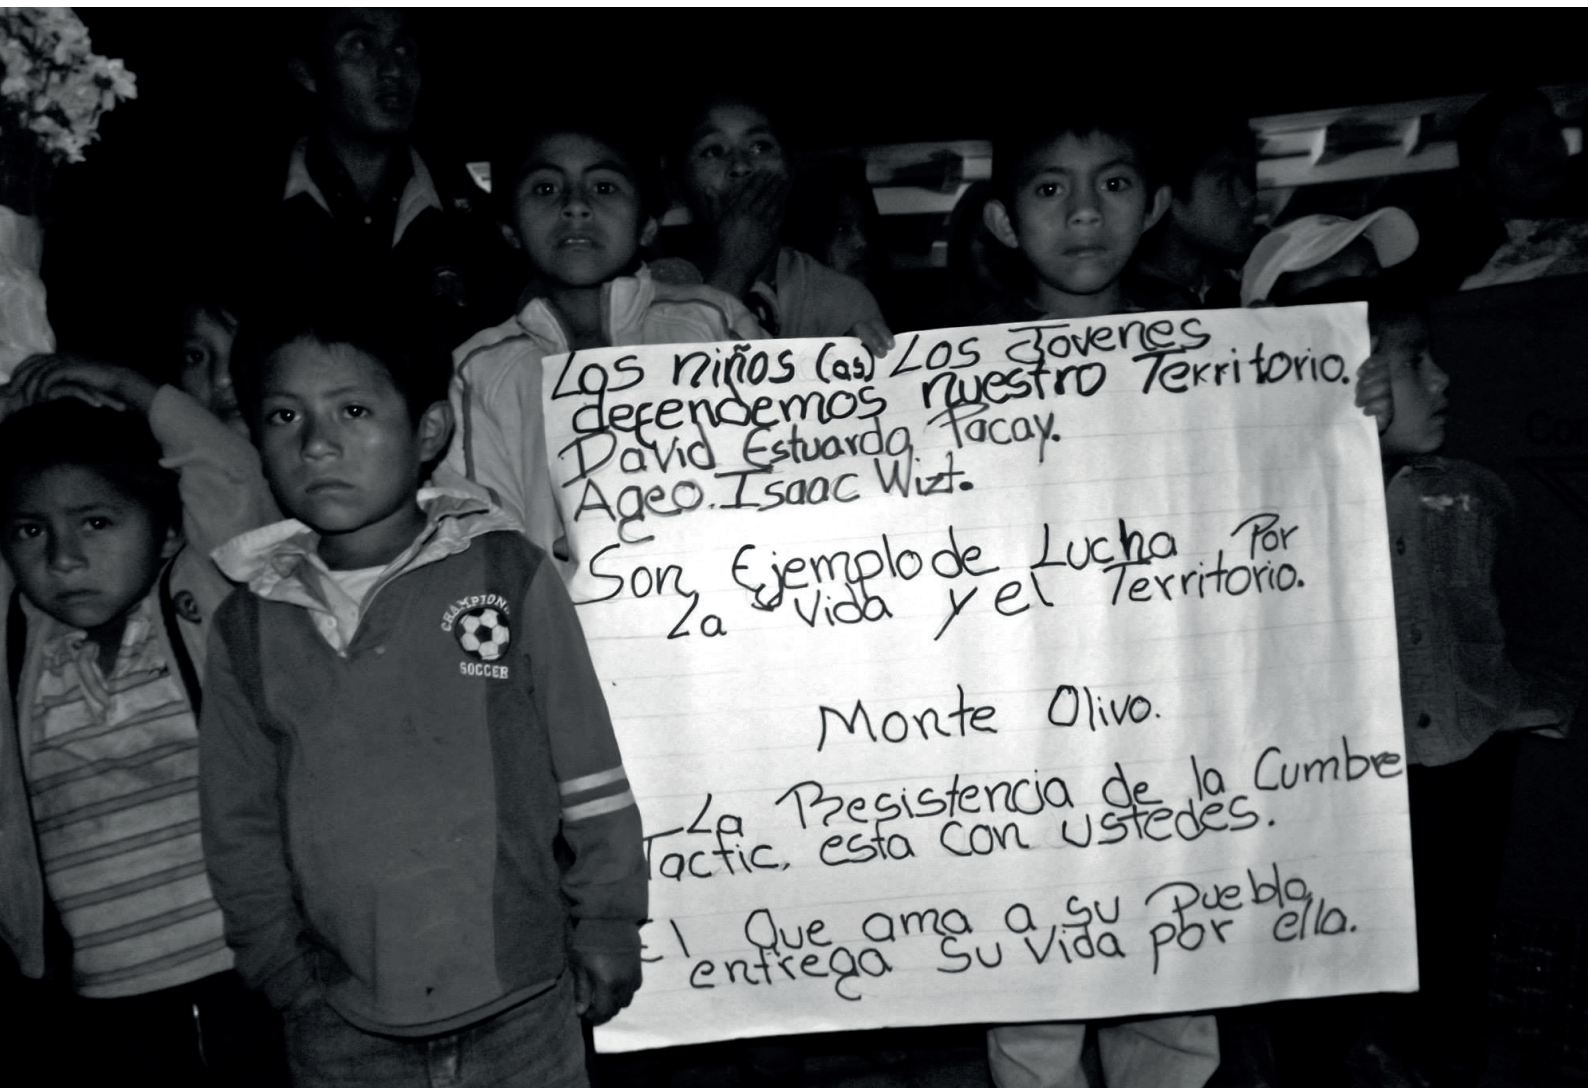 Los niños (as) Los Jovenes
defendemos nuestro Territorio.
David Estuardo Pacay.
Ageo. Isaac Wizt.
Son Ejemplo de Lucha Por
La Vida y el Territorio.
Monte Olivo.
La Resistencia de la Cumbre
Tactic, esta con ustedes.
El Que ama a su Pueblo,
entrega su vida por ella.
CHAMPION
SOCCER